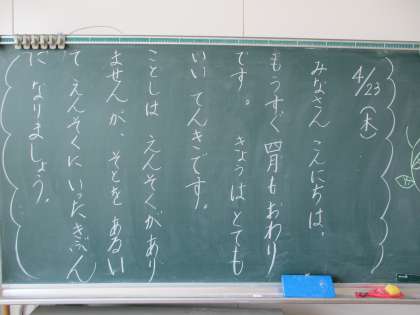 4/23(木)
みなさん こんにちは。
もうすぐ 四月も おわり
です。 きょうは とても
いい てんきです。
ことしは えんそくが あり
ませんが、そとを あるい
て えんそくに いった きぶん
に なりましょう。